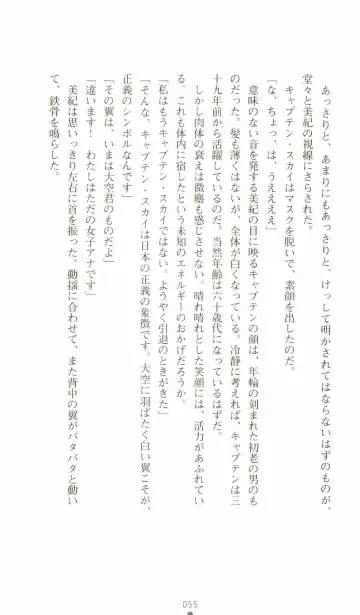 あっさりと、あまりにもあっさりと、けっして明かされてはならないはずのものが、
堂々と美紀の視線にさらされた。
キャプテン・スカイはマスクを脱いで、素顔を出したのだ。
「な、ちょっ、は、うええええ」
意味のない音を発する美紀の目に映るキャプテンの顔は、年輪の刻まれた初老の男のも
のだった。髪も薄くはないが、全体が白くなっている。冷静に考えれば、キャプテンは三
十九年前から活躍しているのだ。当然年齢は六十歳代になっているはずだ。
しかし肉体の衰えは微塵も感じさせない。晴れ晴れとした笑顔には、活力があふれてい
る。これも体内に宿したという未知のエネルギーのおかげだろうか。
「私はもうキャプテン・スカイではない。ようやく引退のときがきた」
「そんな。キャプテン・スカイは日本の正義の象徴です。大空に羽ばたく白い翼こそが、
正義のシンボルなんです」
「その翼は、いまは大空君のものだよ」
「違います！　わたしはただの女子アナです」
美紀は思いっきり左右に首を振った。動揺に合わせて、また背中の翼がバタバタと動い
て、鉄骨を鳴らした。
055